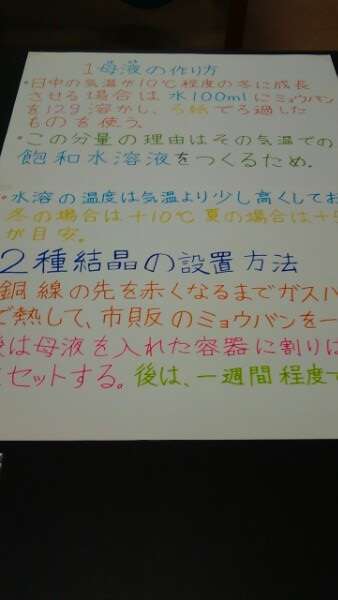 1母液の作り方
・日中の気温が10℃程度の冬に成長
させる場合は水100mlにミョウバン
を12g溶かし、ろ紙でろ過した
ものを使う。
・この分量の理由はその気温での
飽和水溶液をつくるため。
・水溶の温度は気温より少し高くしてお
冬の場合は+10℃夏の場合は+5
が目安。
2種結晶の設置方法
銅線の先を赤くなるまでガスバ
で熱して、市販のミョウバンを一
後は母液を入れた容器に割りば
セットする。後は、一週間程度で